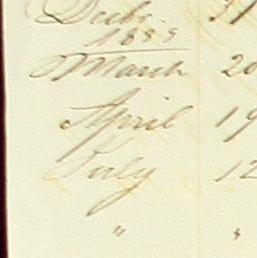 Debr.
1855
March 20
April 19
July 12
" "